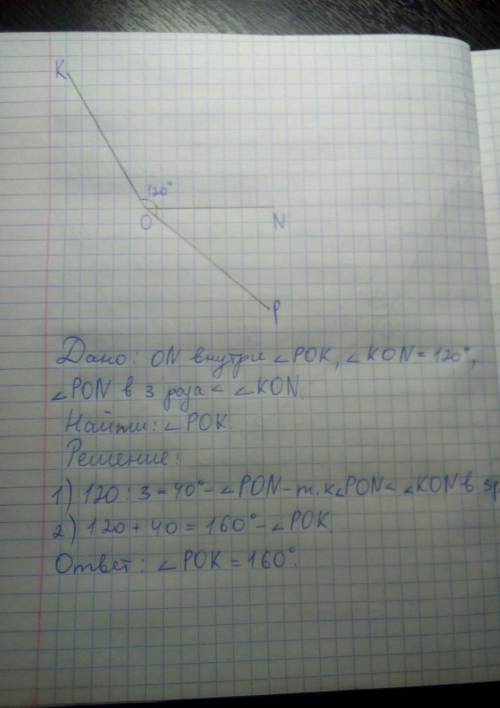 K
120°
O
N
P
Дано: ON внутри ∠POK, ∠KON = 120°,
∠PON в 3 раза < ∠KON.
Найти: ∠POK
Решение:
1) 120 : 3 = 40° - ∠PON - т. к ∠PON < ∠KON в 3р
2) 120 + 40 = 160° - ∠POK.
Ответ: ∠POK = 160°.